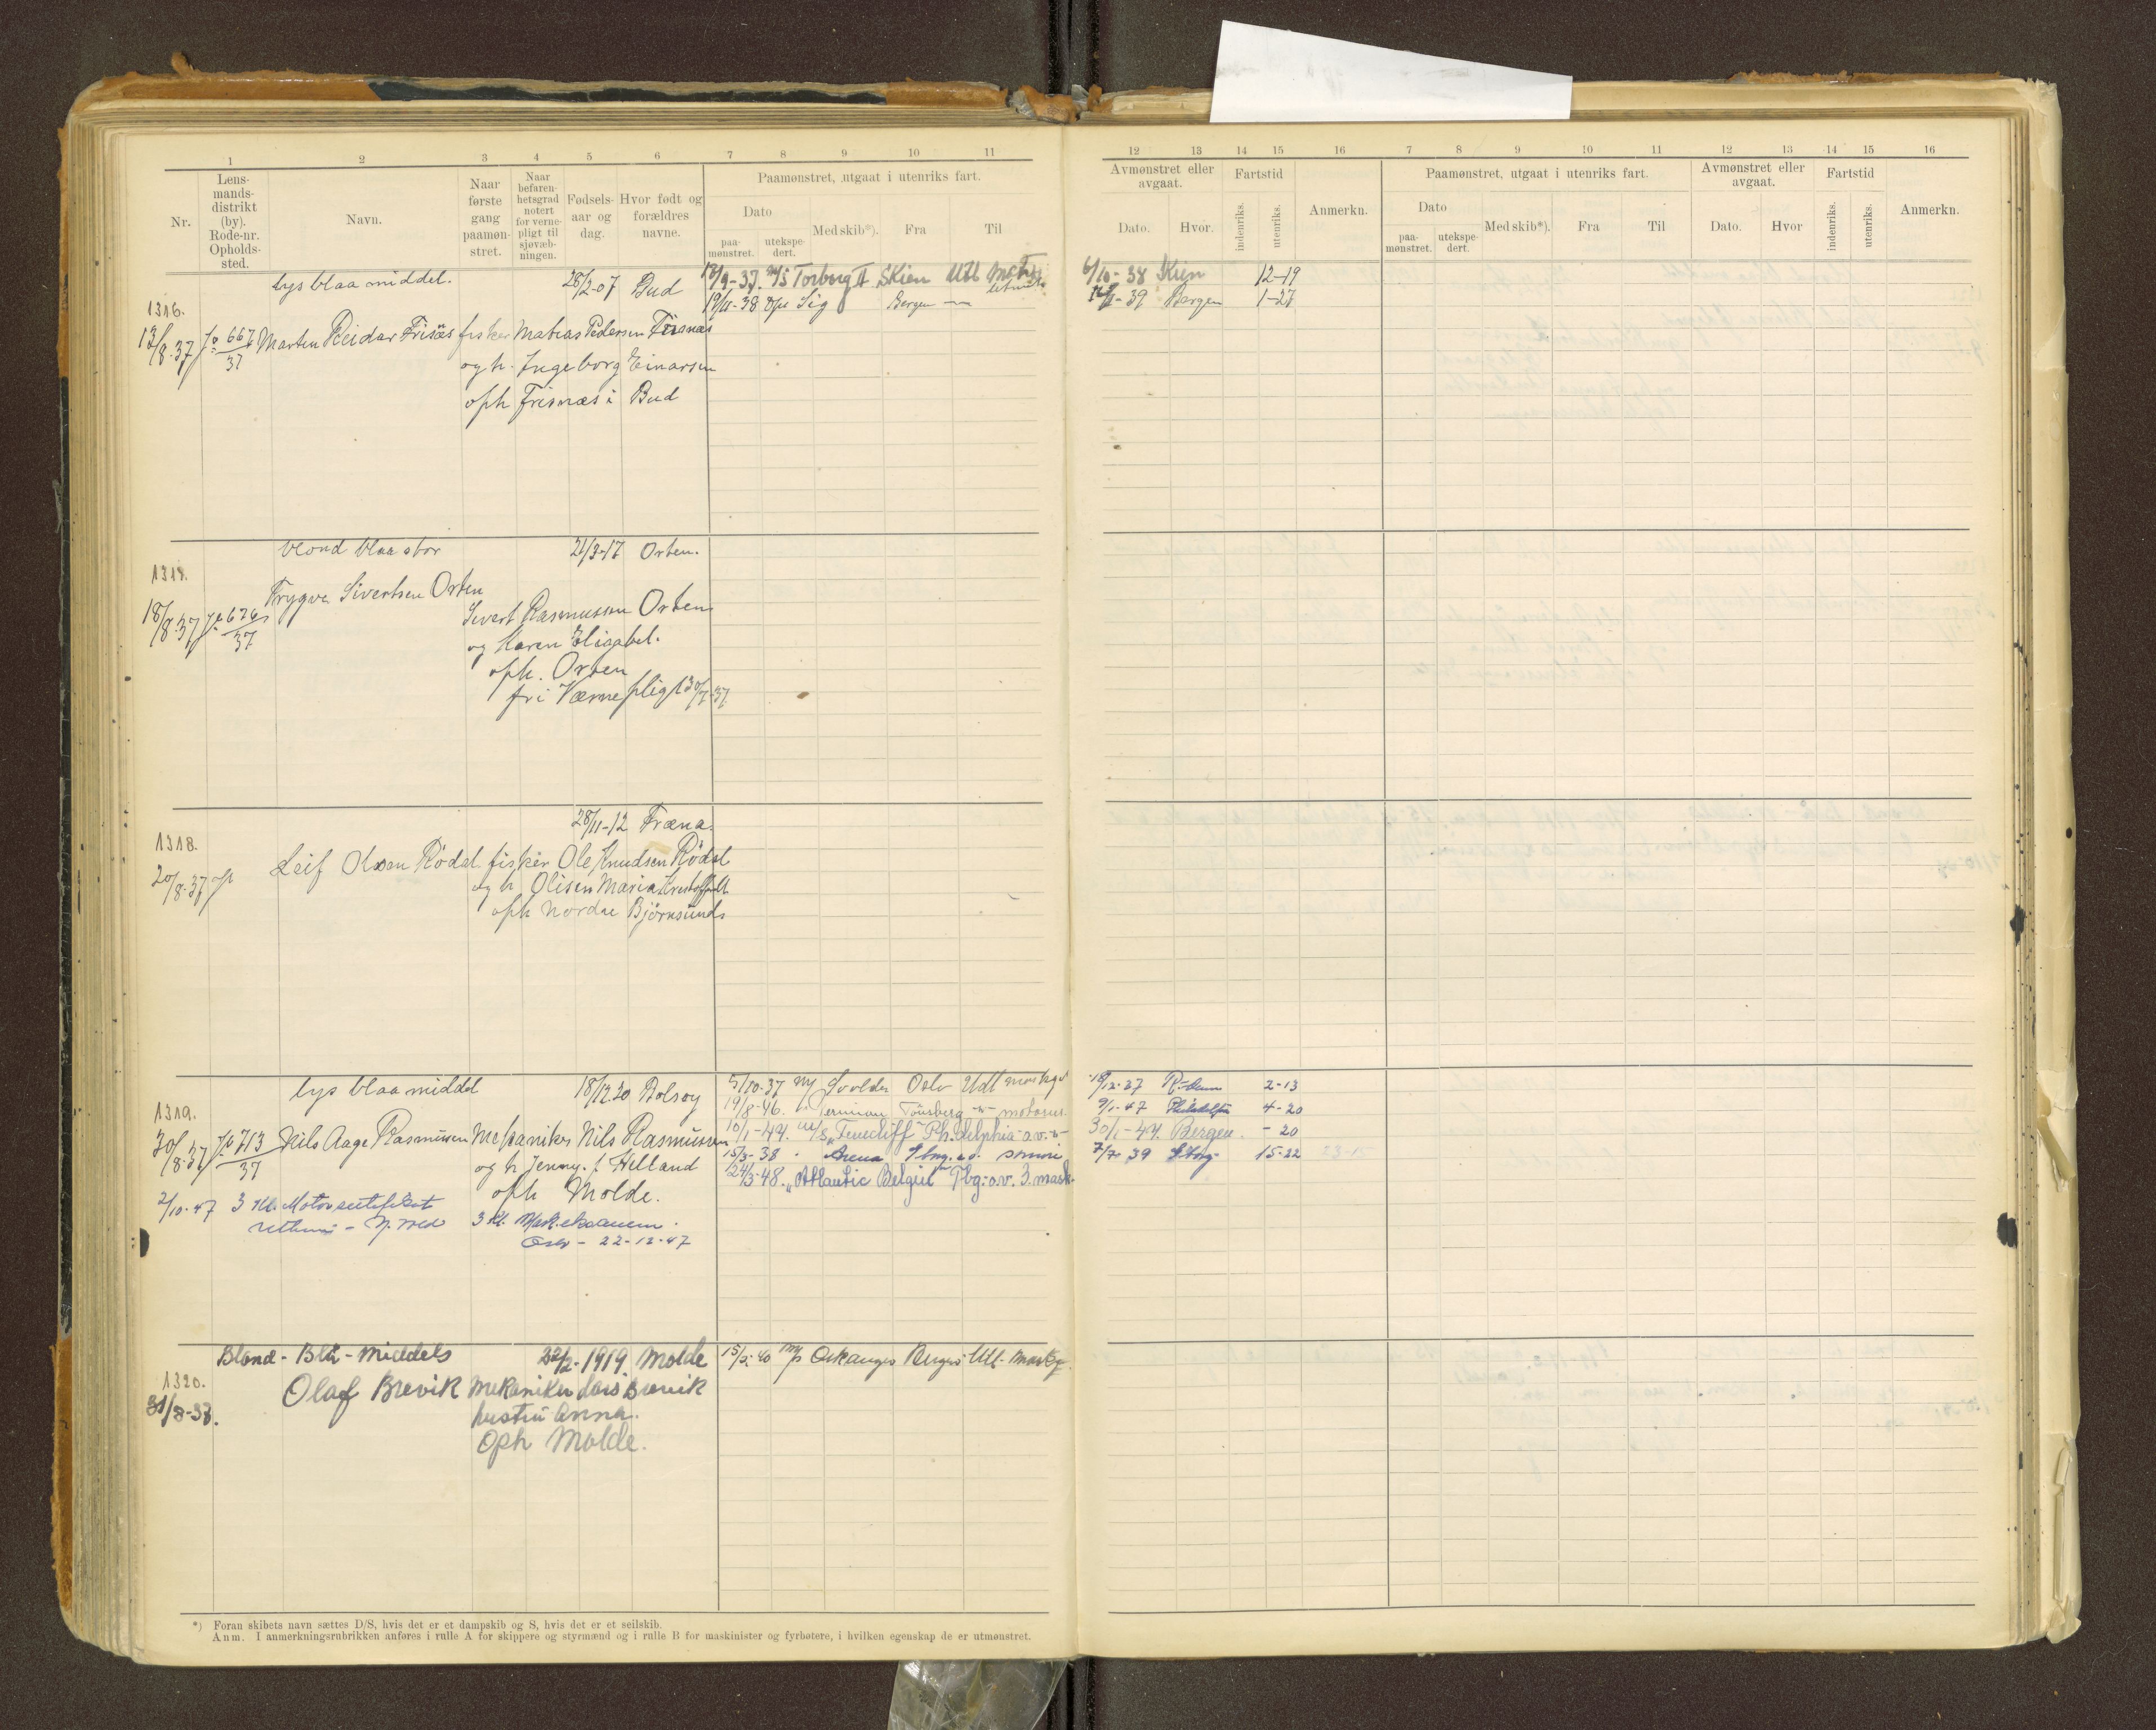 1 2 3 4 5 6 7 8 9 10 11
Nr.
Lens-
mands-
distrikt
(by).
Rode-nr.
Opholds-
sted.
Navn.
Naar
første
gang
paamøn-
stret.
Naar
befaren-
hetsgrad
notert
for verne-
pligt til
sjøvæb-
ningen.
Fødsels-
aar og
dag.
Hvor født og
forældres
navne.
Paamønstret, utgaat i utenriks fart.
Dato
paa-
mønstret.
utekspe-
dert.
Med skib*).
Fra
Til
12 13 14 15 16 7 8 9 10 11 12 13 14 15 16
Avmønstret eller
avgaat.
Dato.
Hvor.
Fartstid
indenriks.
utenriks.
Anmerkn.
Paamønstret, utgaat i utenriks fart.
Dato
paa-
mønstret.
utekspe-
dert.
Med skib*).
Fra
Til
Avmønstret eller
avgaat.
Dato.
Hvor
Fartstid
indenriks.
utenriks.
Anmerkn.
lys blaa middel. 28/2-07 Bud
18/9-37. M/S Torborg II Skien Utl
6/10-38 Skien 12-19
19/11-38 Sig Bergen —
39 Bergen 1-27
1316.
13/8-37 667/37 Marten Reidar Frisnes fisker Matias Pedersen Frisnæs
og h. Ingeborg Einarsen
oph Frisnæs i Bud
blond blaa stor 21/3-17 Orten.
1317.
18/8-37 37 Trygve Sivertsen Orten
Sivert Rasmussen Orten
og Karen Elisabet.
oph. Orten
fri Værnepligt 30/7-37
28/11-12 Fræna.
1318.
20/8-37 Leif Olsen Rödal fisker Ole Knudsen Rödal
og h. Olisen Maria
oph Nordre Björnsund
lys blaa middel 18/12 20 Bolsoy
5/10-37 Svolder Oslo Utl
12-37 2-13
19/8-46. Tönsberg -"-
9/1-47 4-20
1319.
30/8-37 713/37 Nils Aage Rasmussen Mekaniker Nils Rasmussen
10/1-47. M/S
30/1-47. Bergen. - 20
og h. Jenny f. Helland
15/3-38 Arena Tbrg.
7/7-39 15-22
oph Molde.
24/3-48. "Atlantic Tbg: o.v. 3. mask.
2/10-47 3 Kl. Motorsertifikat
3 Kl. Mask.eksamen.
Oslo - 22-12-47
Blond - Blå - Middels 22/2-1919. Molde
15/3-40 Orkanger Utl.
1320.
31/8-37. Olaf Brevik Mekaniker Lars Brevik
hustru Anna.
Oph Molde.
*) Foran skibets navn sættes D/S, hvis det er et dampskib og S, hvis det er et seilskib.
Anm. I anmerkningsrubrikken anføres i rulle A for skippere og styrmænd og i rulle B for maskinister og fyrbøtere, i hvilken egenskap de er utmønstret.